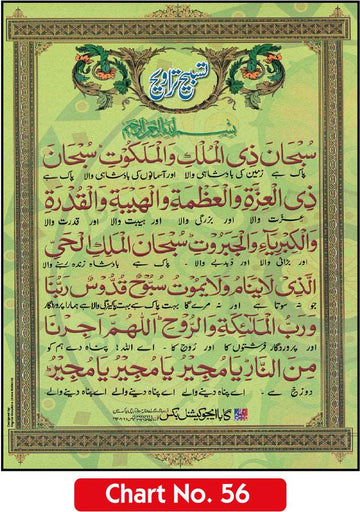 تسبیح تراویح
بسم اللہ الرحمن الرحیم
سُبْحَانَ ذِی الْمُلْكِ وَالْمَلَكُوْتِ سُبْحَانَ
پاک ہے زمین کی بادشاہی والا اور آسمانوں کی بادشاہی والا پاک ہے
ذِی الْعِزَّةِ وَالْعَظَمَةِ وَالْهَيْبَةِ وَالْقُدْرَةِ
عزت والا اور بزرگی والا اور ہیبت والا اور قدرت والا
وَالْكِبْرِيَآءِ وَالْجَبَرُوْتِ سُبْحَانَ الْمَلِكِ الْحَىِّ
اور بڑائی والا اور دبدبے والا۔ پاک ہے بادشاہ زندہ رہنے والا
الَّذِىْ لَايَنَامُ وَلَايَمُوْتُ سُبُّوْحٌ قُدُّوْسٌ رَبُّنَا
جو نہ سوتا ہے اور نہ مرے گا بہت پاک ہے بہت پاکیزگی والا ہے ہمارا پروردگار
وَرَبُّ الْمَلٰٓئِكَةِ وَالرُّوْحِ اَللّٰهُمَّ اَجِرْنَا
اور پروردگار فرشتوں کا اور روح کا۔ اے اللہ! پناہ دے ہم کو
مِنَ النَّارِ يَا مُجِيْرُ يَا مُجِيْرُ يَا مُجِيْرُ
دوزخ سے۔ اے پناہ دینے والے اے پناہ دینے والے اے پناہ دینے والے
گابا ایجوکیشنل بکس
Chart No. 56